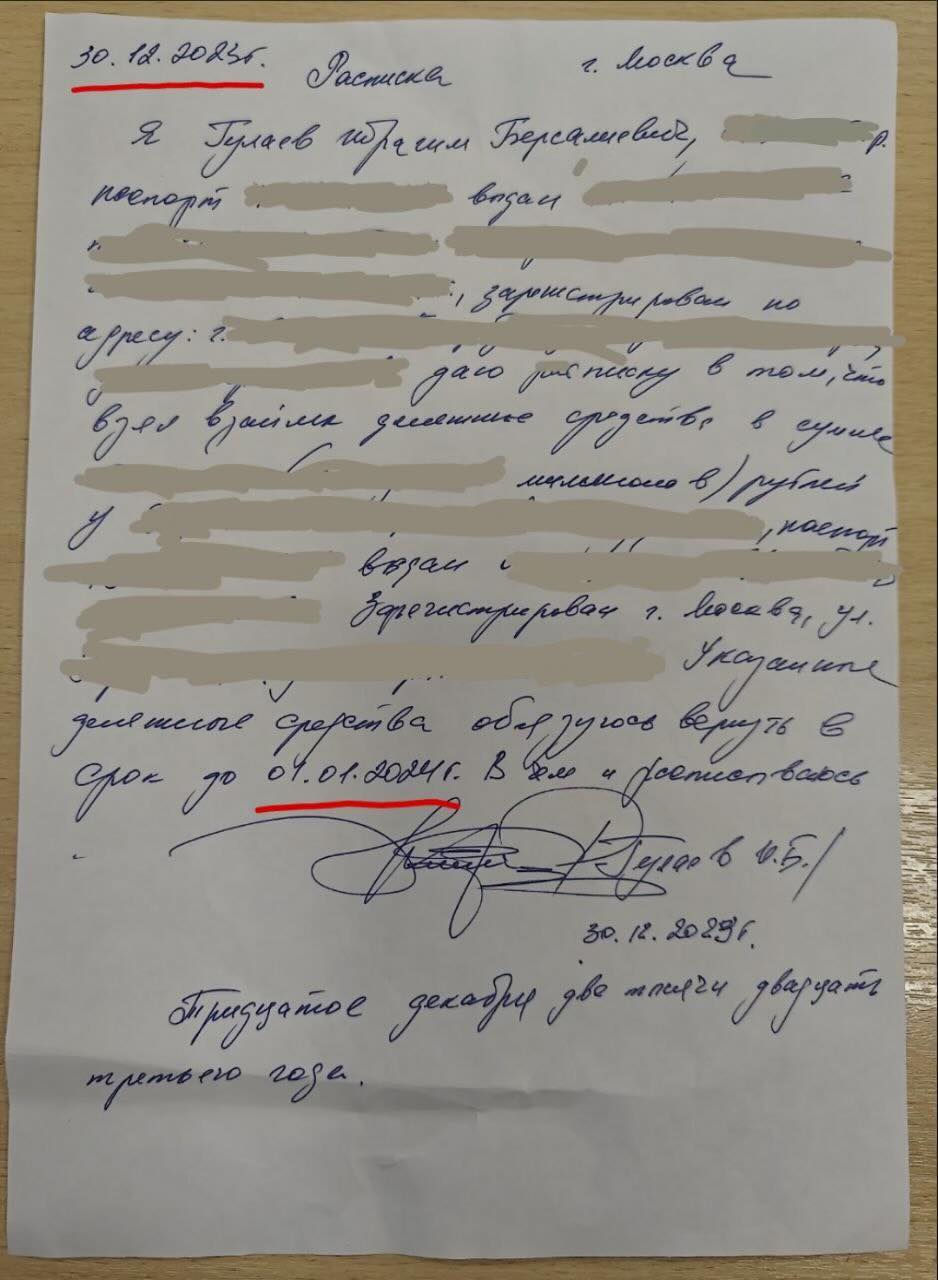 30.12.2023г. Расписка г. Москва
Я Гулаев Ибрагим Берсалиевич, р.
паспорт выдан
, зарегистрирован по
адресу: г.
даю расписку в том, что
взял взаймы денежные средства в сумме
миллионов) рублей
у , паспорт
выдан
Зарегистрирован г. Москва, ул.
Указанные
денежные средства обязуюсь вернуть в
срок до 01.01.2024г. В чем и расписываюсь
/Гулаев И.Б./
30.12.2023г.
Тридцатое декабря две тысячи двадцать
третьего года.